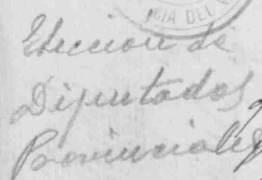 CIA DEL
Eleccion de
Diputados
Provinciales